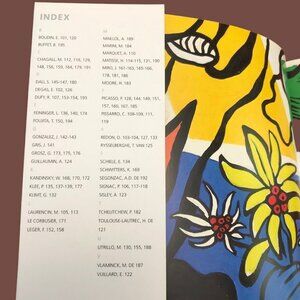 INDEX
B
BOUDIN, E. 101, 120
BUFFET, B. 195
C
CHAGALL, M. 112, 116, 129,
148, 156, 159, 164, 179, 191
D
DALI, S. 145-147, 180
DEGAS, E. 102, 126
DUFY, R. 107, 153-154, 193
F
FEININGER, L. 136, 140, 174
FOUJITA, T. 150, 164
G
GONZALEZ, J. 142-143
GRIS, J. 141
GROSZ, G. 173, 175, 176
GUILLAUMIN, A. 124
K
KANDINSKY, W. 168, 170, 172
KLEE, P. 135, 137-139, 177
KLIMT, G. 132
L
LAURENCIN, M. 105, 113
LE CORBUSIER, 171
LEGER, F. 152, 158
M
MAILLOL, A. 189
MARQUET, A. 110
MATISSE, H. 114-115, 131, 190
MIRO, J. 161-163, 165-166,
178, 181, 186
MOORE, H. 183
P
PICASSO, P. 128, 144, 149, 151,
157, 160, 167, 185
PISSARRO, C. 108-109, 111,
119
R
REDON, O. 103-104, 127, 133
RYSSELBERGHE, T. VAN 125
S
SCHIELE, E. 134
SCHWITTERS, K. 169
SEGONZAC, A.D. DE 192
SIGNAC, P. 106, 117-118
SISLEY, A. 123
T
TCHELITCHEW, P. 182
TOULOUSE-LAUTREC, H. DE
121
U
UTRILLO, M. 130, 155, 188
V
VLAMINCK, M. DE 187
VUILLARD, E. 122